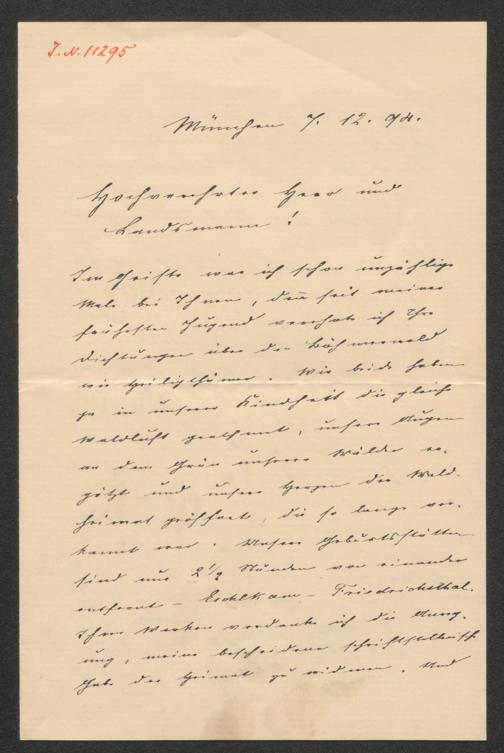 J.N. 11295
München 7. 12. 94.
Hochverehrter Herr und
Landsmann!
Im Geiste war ich schon unzählige
Male bei Ihnen, deñ seit meiner
frühesten Jugend verehrte ich Ihre
Dichtungen über den Böhmerwald
wie Heiligthümer. Wir beide haben
ja in unserer Kindheit die gleiche
Waldluft geathmet, unsere Augen
an dem Grün unserer Wälder er-
götzt und unsere Herzen der Wald-
heimat geöffnet, die so lange ver-
kannt war. Unsere Geburtsstätten
sind nur 2 1/2 Stunden von einander
entfernt – Eschlkam – Friedrichsthal.
Ihren Werken verdanke ich die Anreg-
ung, meine bescheidene schriftstellerische
Gabe der Heimat zu widmen. Und